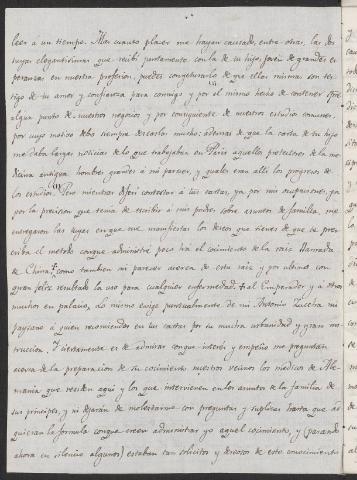 leer á un tiempo. Mas cuanto placer me hayan causado, entre otras, las dos
tuyas elegantisimas que recibi juntamente con la de tu hijo, joven de grandes es
peranzas en nuestra profesion, puedes congeturarlo de que ellas mismas son tes
tigo de tu amor y confianza para conmigo y por el mismo hecho de contener
algun punto de nuestros negocios y por consiguiente de nuestros estudios comunes,
por cuyo motivo debo siempre desearlas mucho; ademas de que la carta de tu hijo
me daba largas noticias de lo que trabajaban en Paris aquellos protectores de la me
dicina antigua, hombres grandes a mi parecer, y cuales eran alli los progresos de
los estudios. Pero mientras diferi contestar á tus cartas, ya por mis ocupaciones, ya
por la precision que tenia de escribir á mis padres sobre asuntos de familia, me
entregaron las tuyas en que me manifiestas los deseos que tienes de que se pres
criba el metodo con que administré poco há el cocimiento de la raiz llamada
de China, como tambien mi parecer acerca de esta raiz y por ultimo con
que feliz resultado la uso para cualquier enfermedad el Emperador y á otros
muchos en palacio. Lo mismo exige puntualmente de mi Antonio Zuccha mi
paysano á quien recomiendas en tus cartas por su mucha urbanidad y grande ins
truccion. Y ciertamente es de admirar con que interes y empeño me preguntan
acerca de la preparacion de su cocimiento nuestros vecinos los medicos de Ale-
mania que residen aqui y los que intervienen en los asuntos de la familia de
sus principes, y ni dejarán de molestarme con preguntas y suplicas hasta que ad
quieran la formula con que creen administrar yo aquel cocimiento, y (pasando
ahora en silencio algunos) estaban tan solicitos y deseosos de este conocimiento